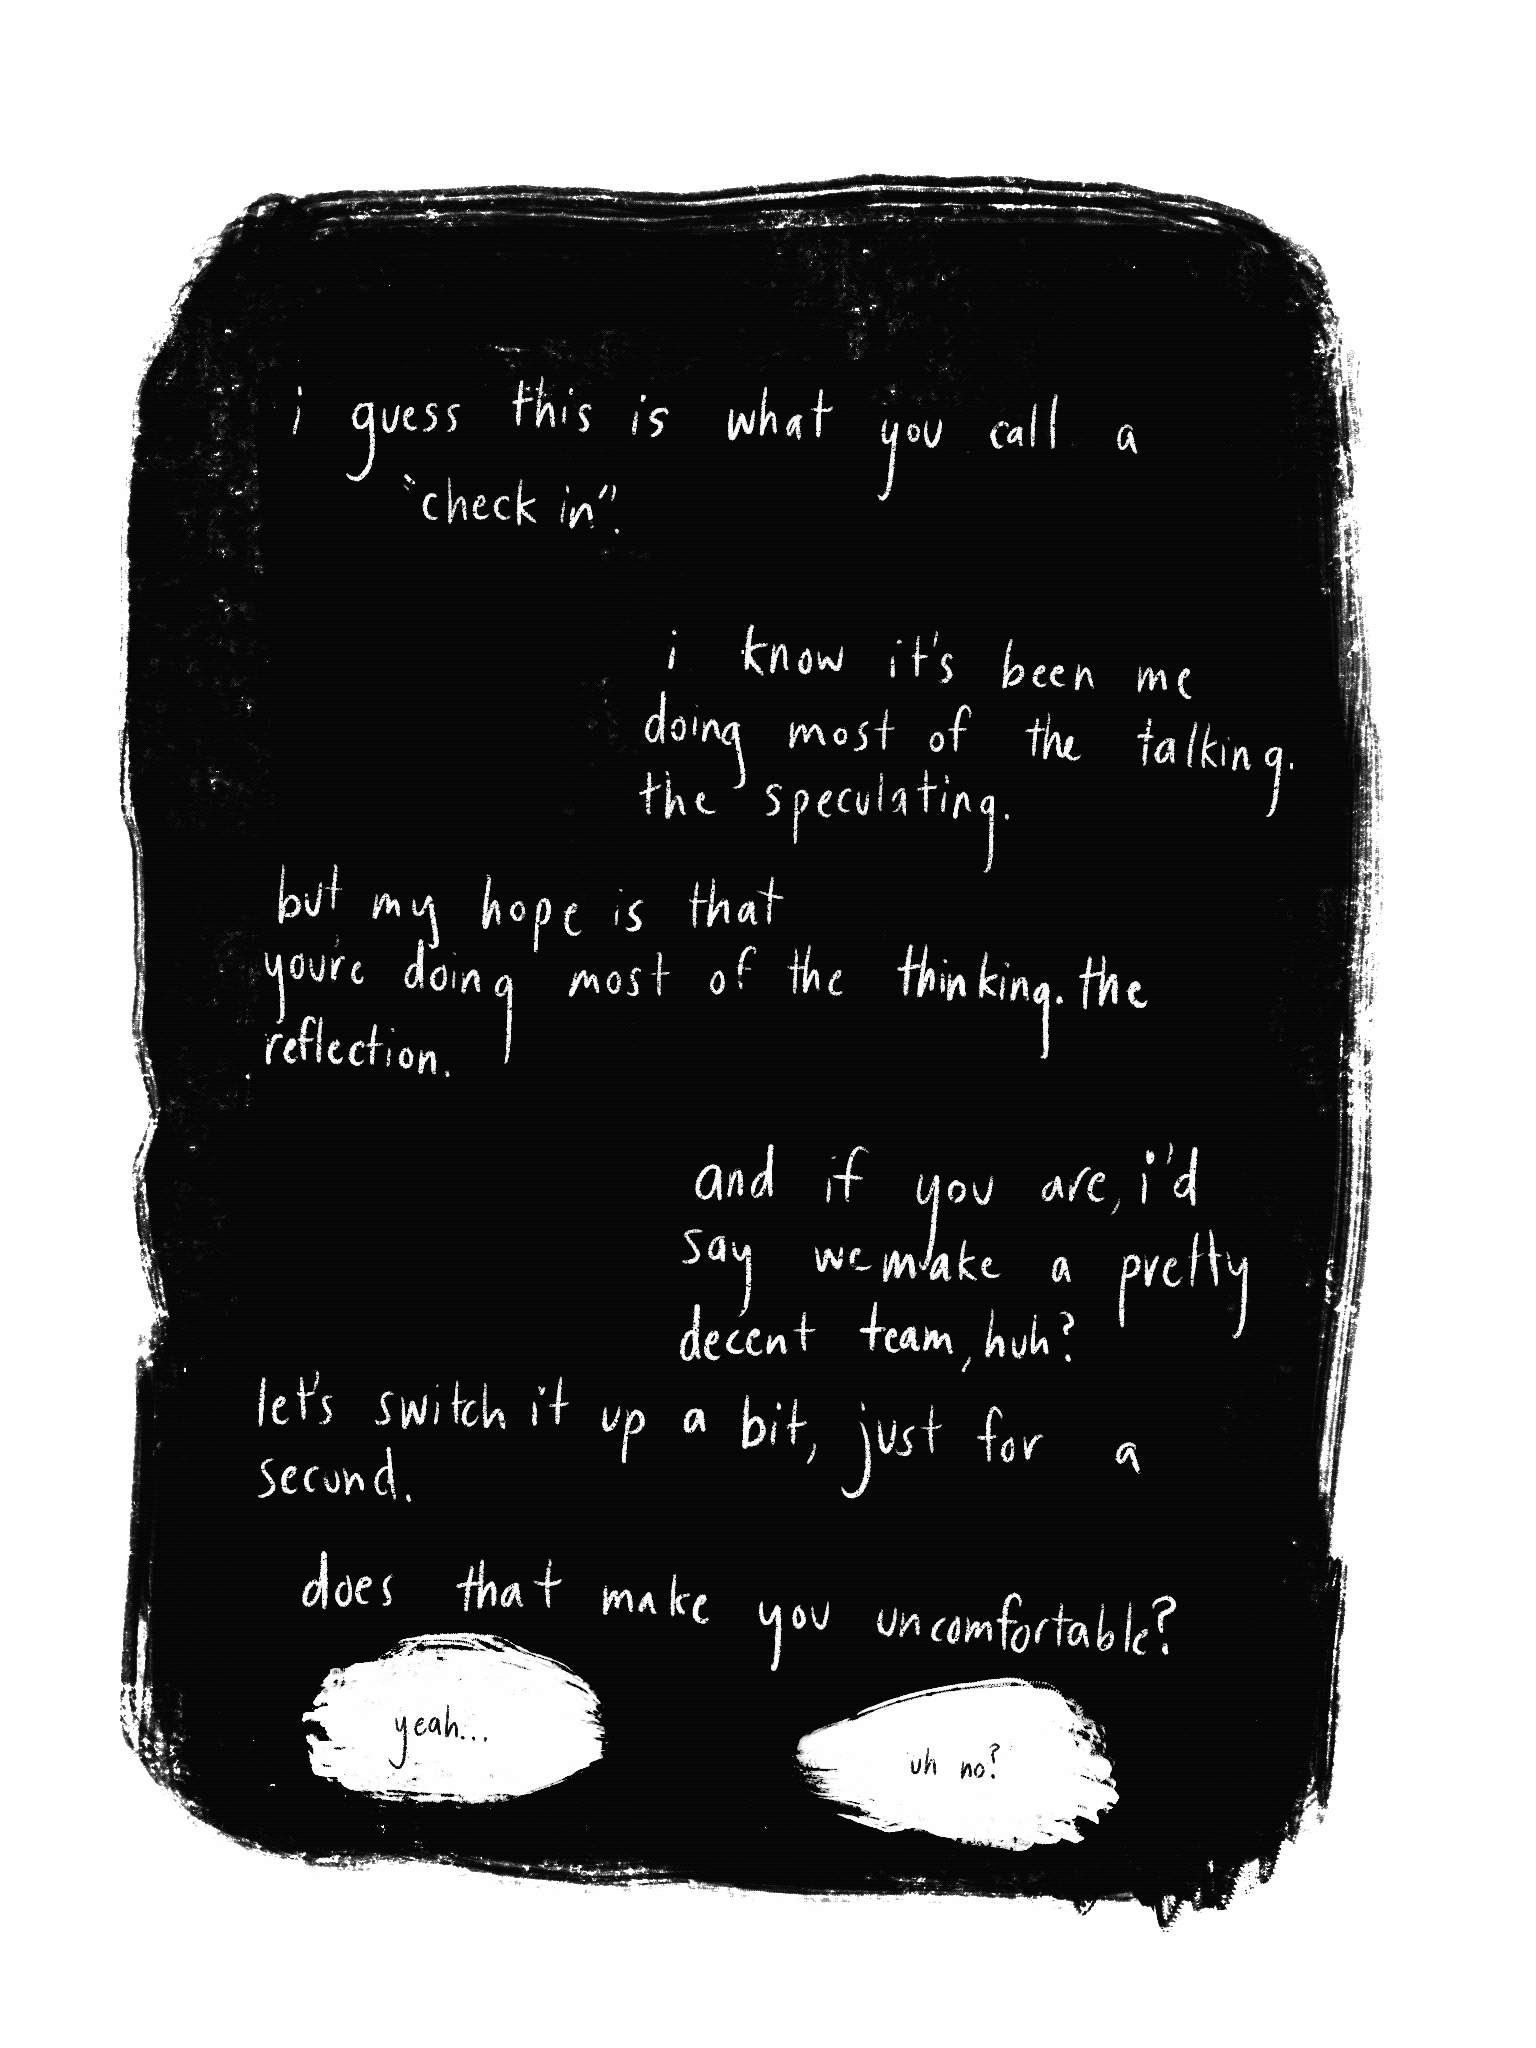 i guess this is what you call a
"check in".
i know it's been me
doing most of the talking.
the speculating.
but my hope is that
you're doing most of the thinking. the
reflection.
and if you are, i'd
say we make a pretty
decent team, huh?
let's switch it up a bit, just for a
second.
does that make you uncomfortable?
yeah...
uh no?